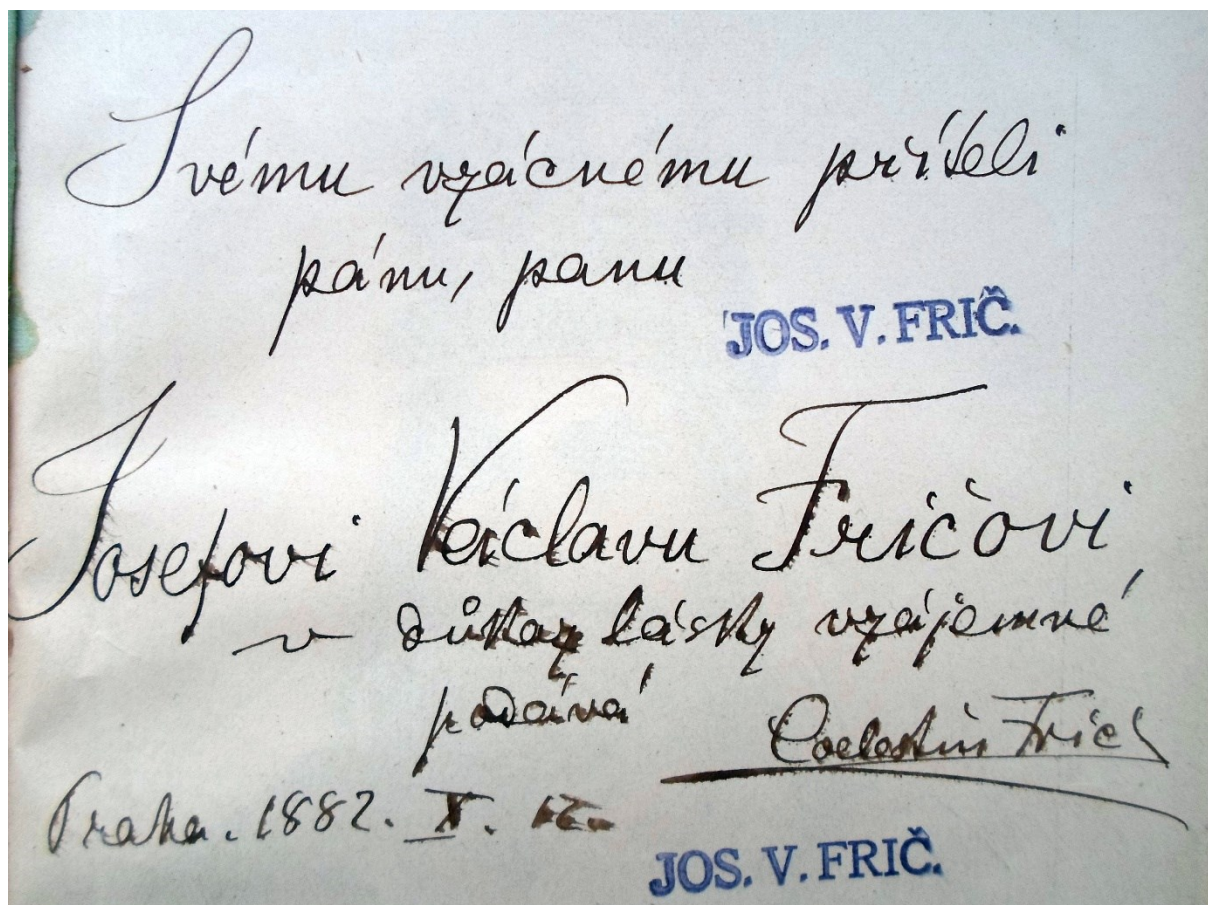 Svému vzácnému příteli
pánu, panu
JOS. V. FRIČ.
Josefovi Václavu Fričovi
v důkaz lásky vzájemné
podává
Coelestin Frič
Praha. 1882. X. 12.
JOS. V. FRIČ.